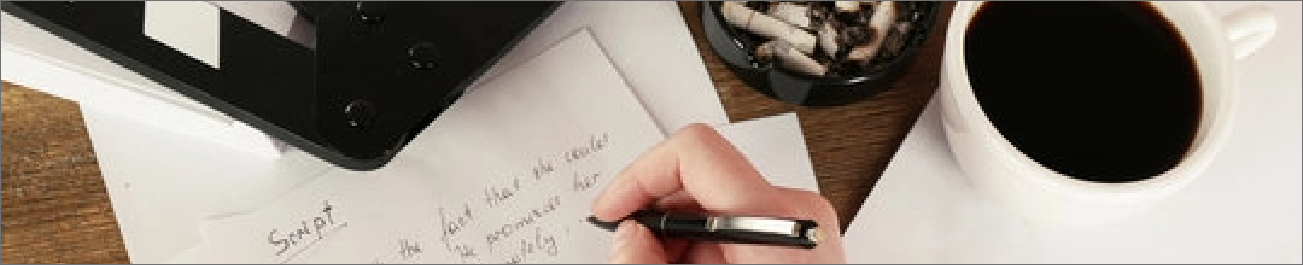 Script
the fact that she could
he promises her